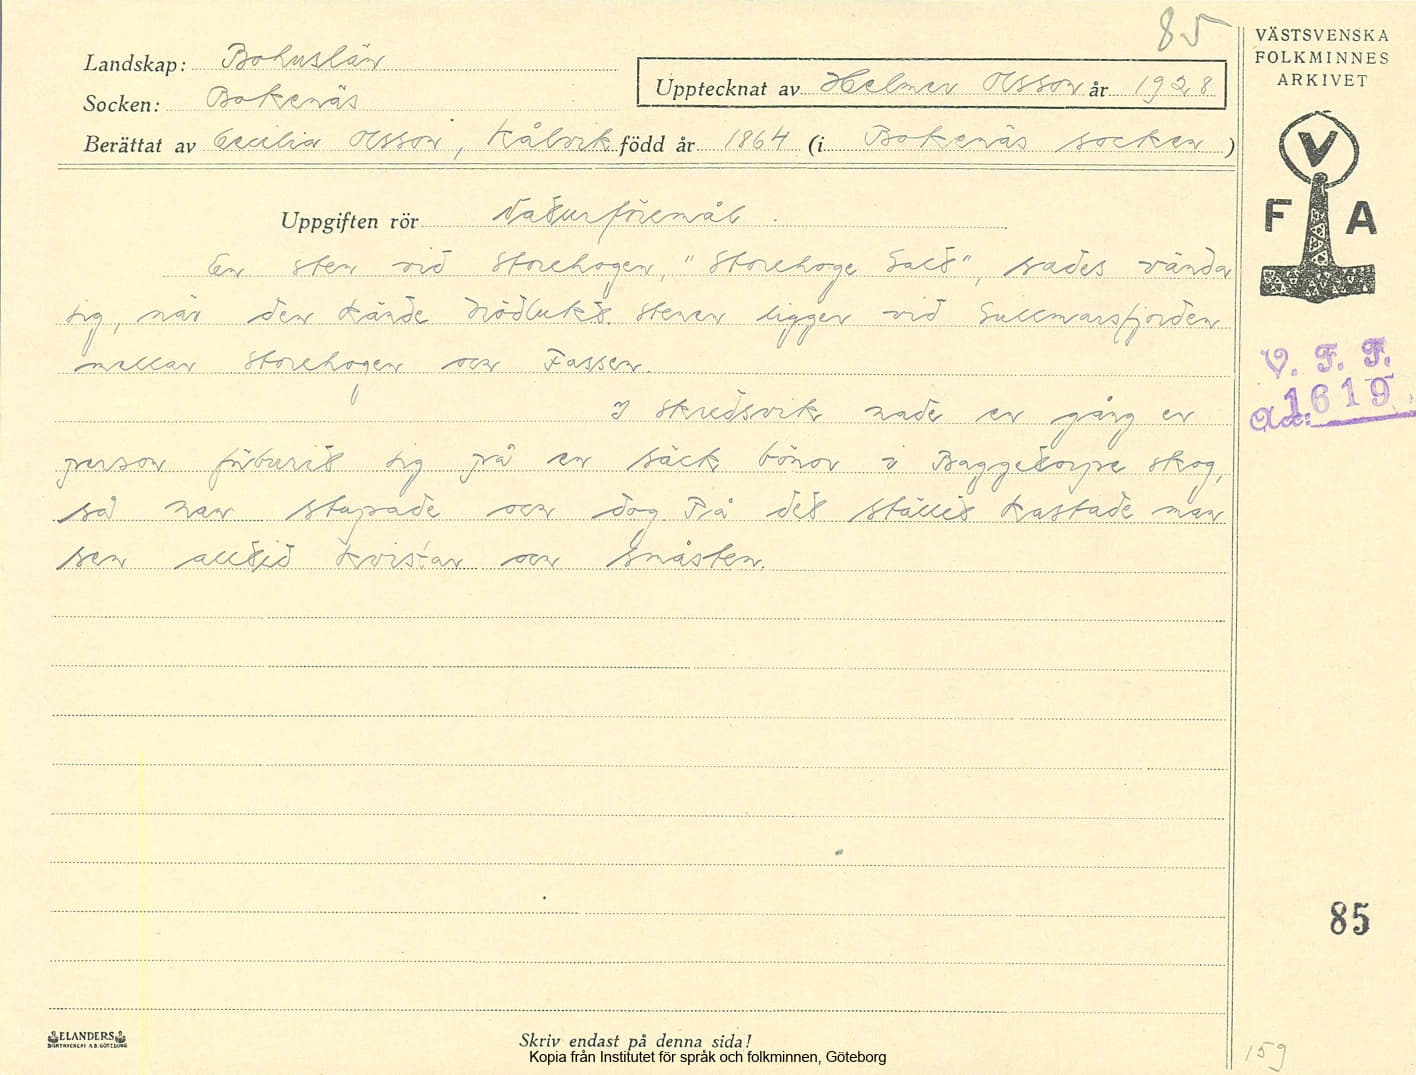 85
Landskap: Bohuslän
Socken: Bokenäs
Upptecknat av Helmer Olsson år 1928
Berättat av Cecilia Olsson, Kålvik född år 1864 (i Bokenäs socken)
Uppgiften rör Naturföremål.
En sten vid Storehogen, "Storehoge Galt", sades vända
sig, när den kände brödlukt. Stenen ligger vid Gullmarsfjorden
mellan Storehogen och Fassen.
I Skredsvik hade en gång en
person förburit sig på en säck bönor i Baggetorps skog,
så han stapade och dog. På det stället kastade man
sen alltid kvistar och småsten.
VÄSTSVENSKA
FOLKMINNES
ARKIVET
V
F A
V. F. F.
Acc: 1619
85
159
ELANDERS
BOKTRYCKERI A.B. GÖTEBORG
Skriv endast på denna sida!
Kopia från Institutet för språk och folkminnen, Göteborg